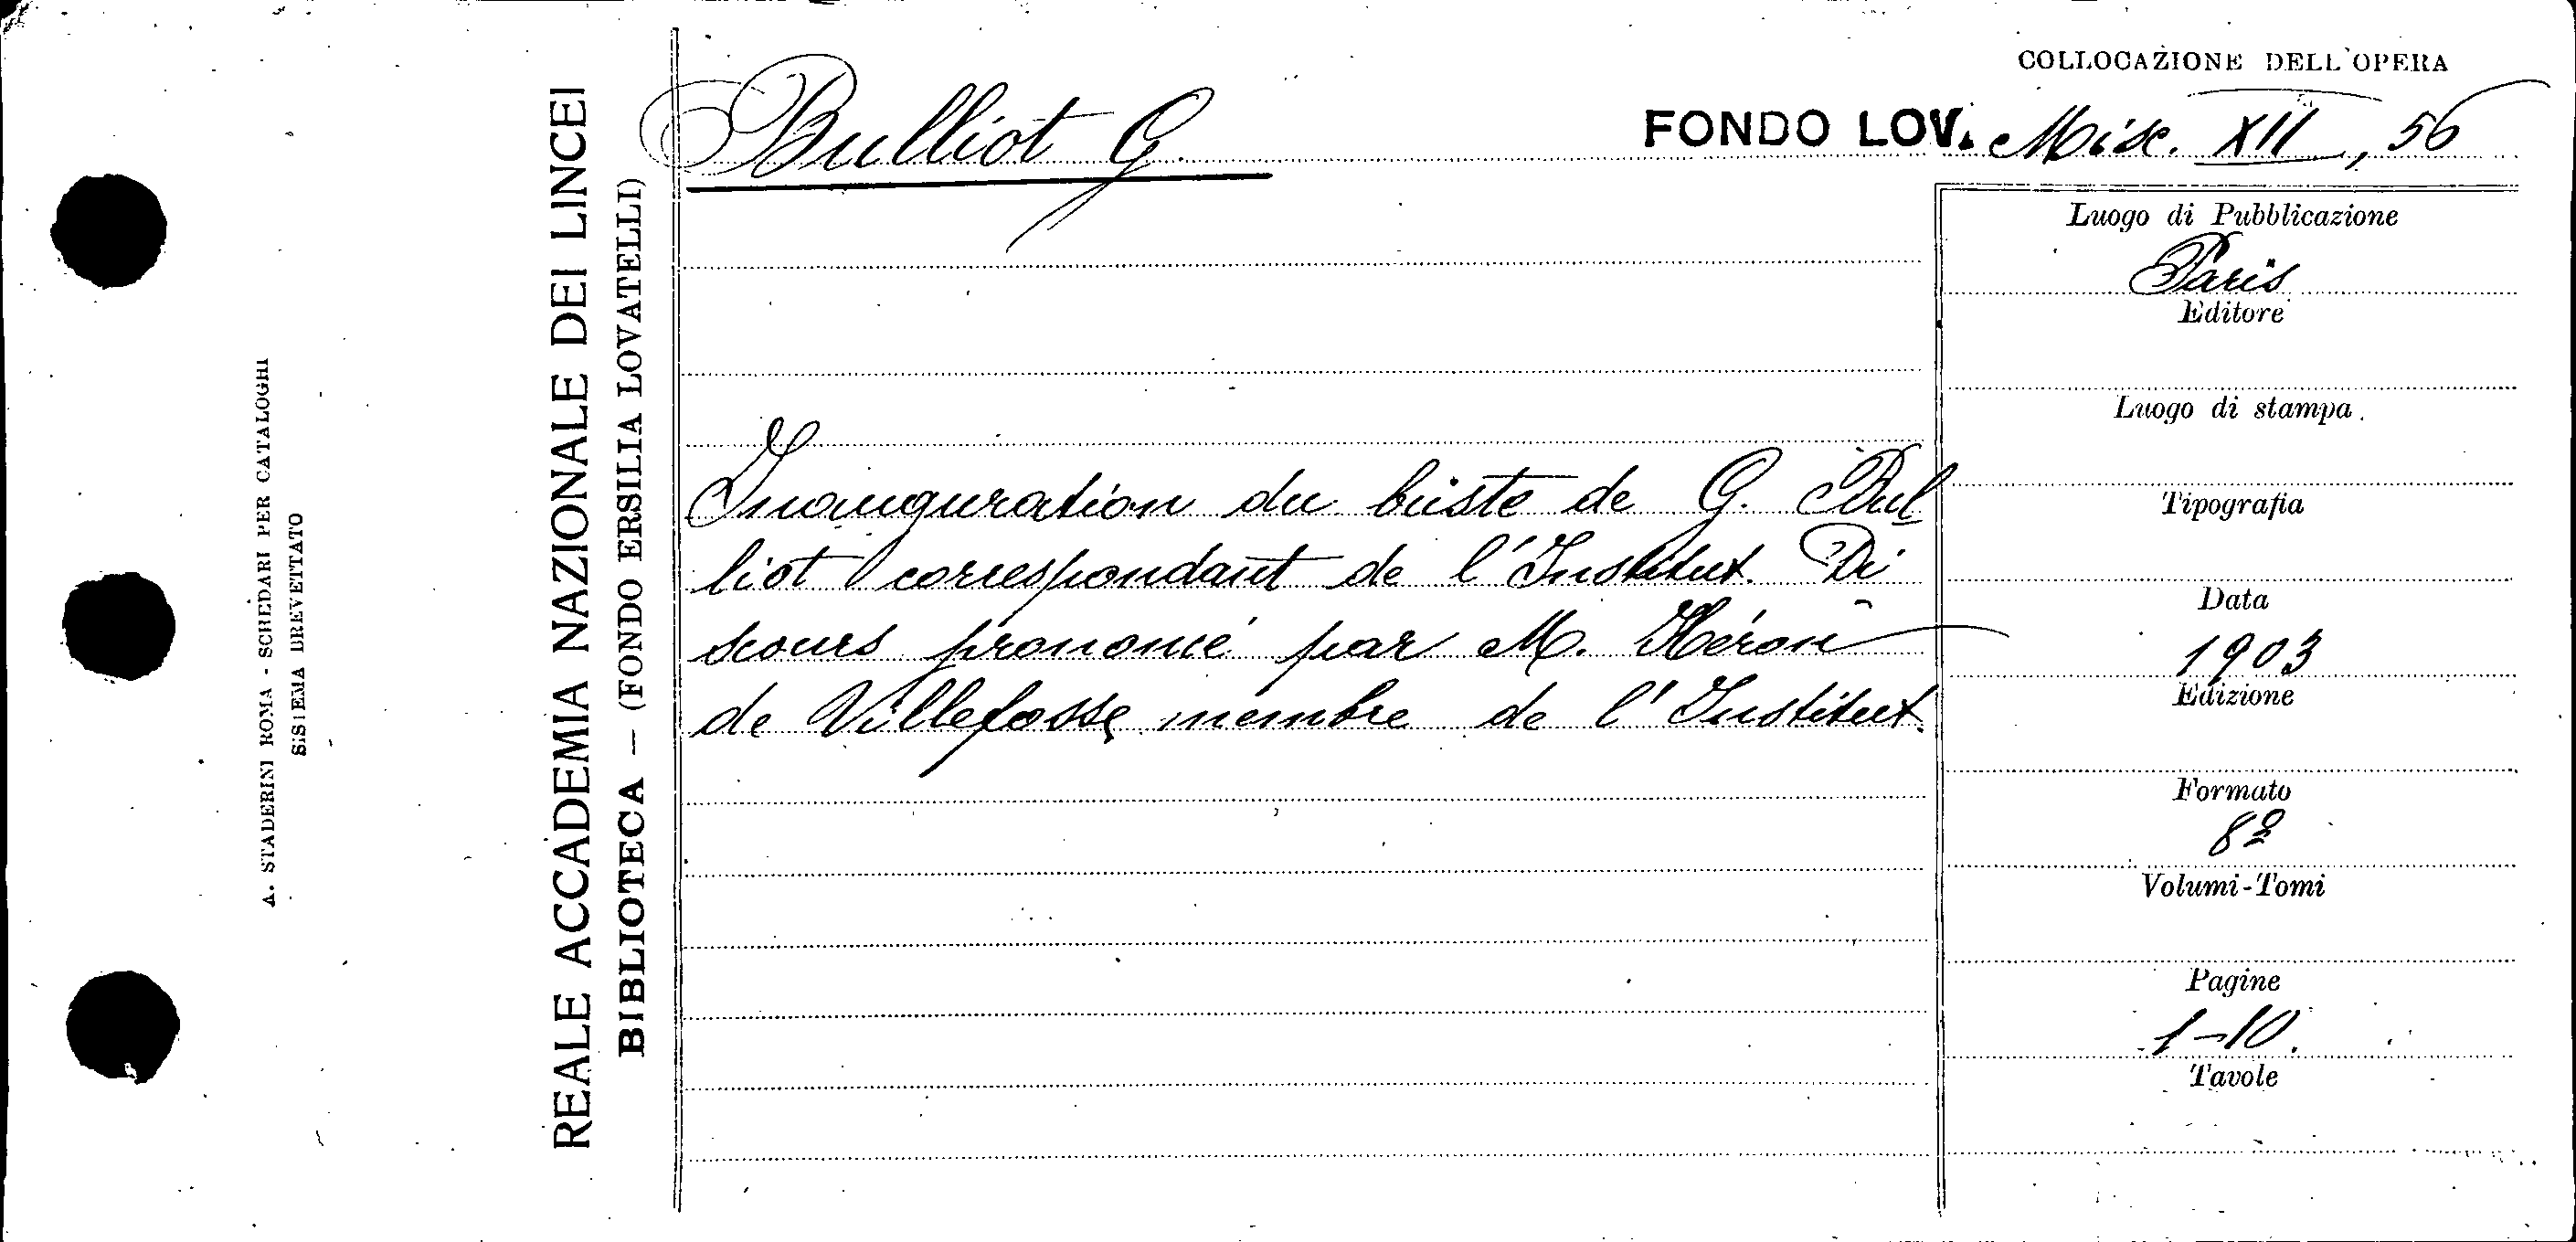 A. STADERINI ROMA - SCHEDARI PER CATALOGHI
SISTEMA BREVETTATO
REALE ACCADEMIA NAZIONALE DEI LINCEI
BIBLIOTECA — (FONDO ERSILIA LOVATELLI)
COLLOCAZIONE DELL'OPERA
Bulliot G.
FONDO LOV. Misc. XII, 56
Inauguration du buste de G. Bul
liot correspondant de l'Institut. Di
scours prononcé par M. Héron
de Villefosse membre de l'Institut.
Luogo di Pubblicazione
Paris
Editore
Luogo di stampa.
Tipografia
Data
1903
Edizione
Formato
8º
Volumi-Tomi
Pagine
1-10.
Tavole